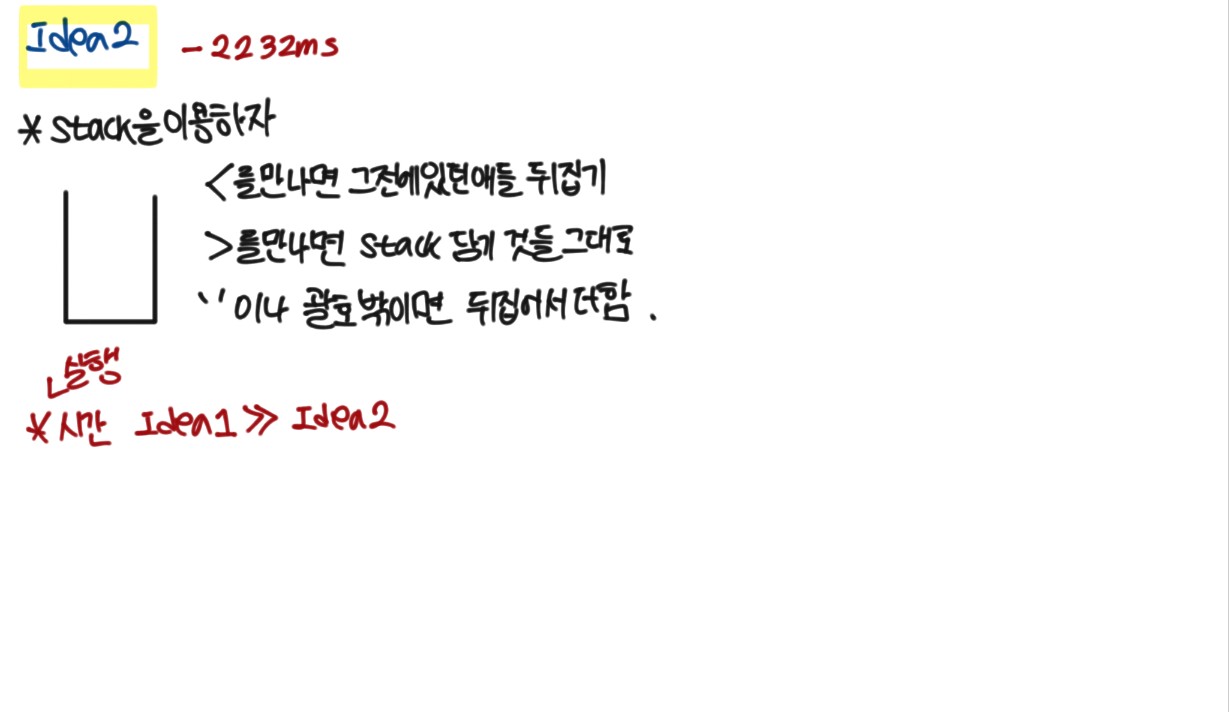 Idea2 - 2232ms
* Stack을 이용하자
<를 만나면 그전에 있던애들 뒤집기
>를 만나면 stack 담긴 것들 그대로
' '이나 괄호 밖이면 뒤집어서 더함.
실행
* 시간 Idea1 >> Idea2